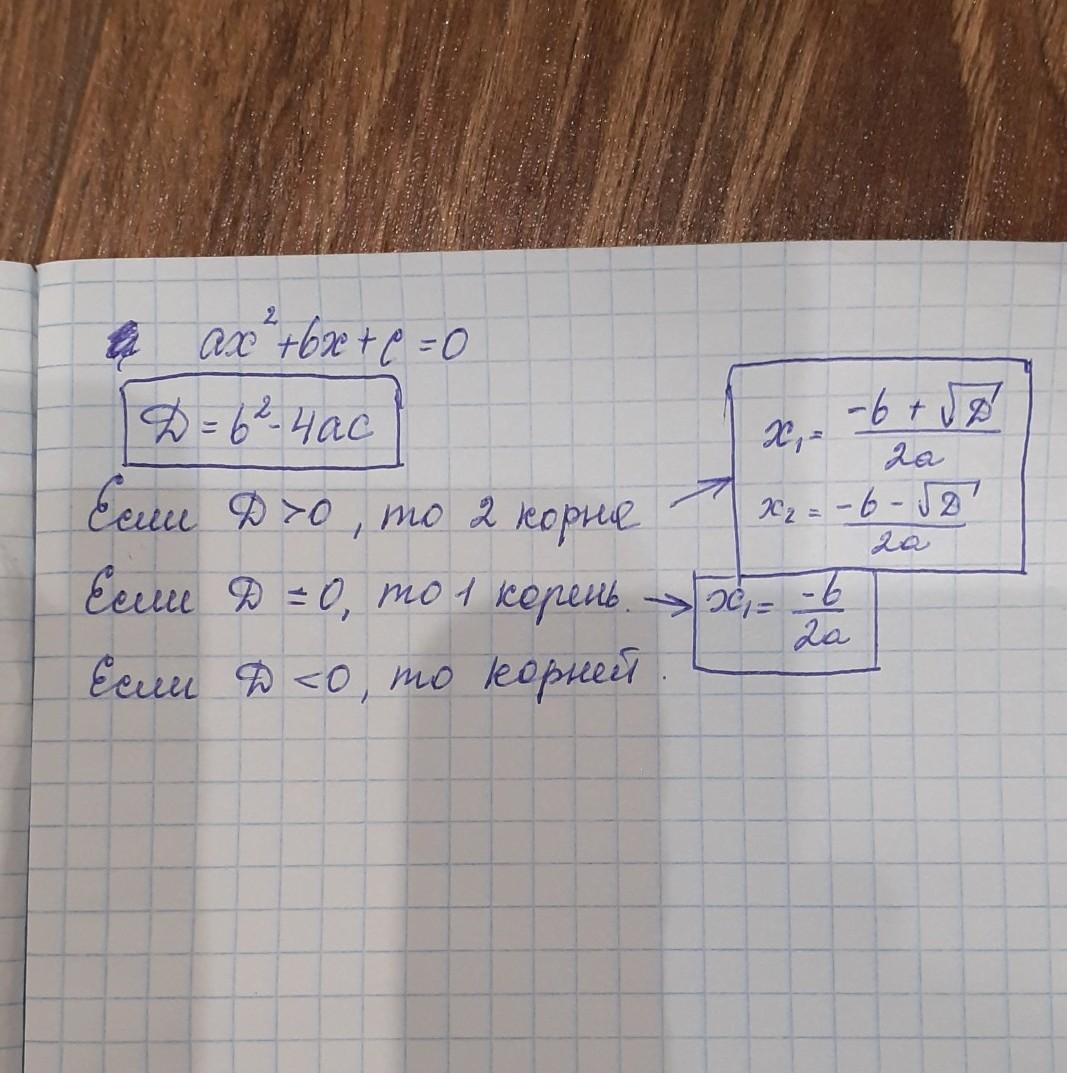 ax²+bx+c=0
D=b²-4ac
Если D>0, то 2 корне
x₁= -b + √D / 2a
x₂= -b - √D / 2a
Если D=0, то 1 корень. → x₁= -b / 2a
Если D<0, то корней.